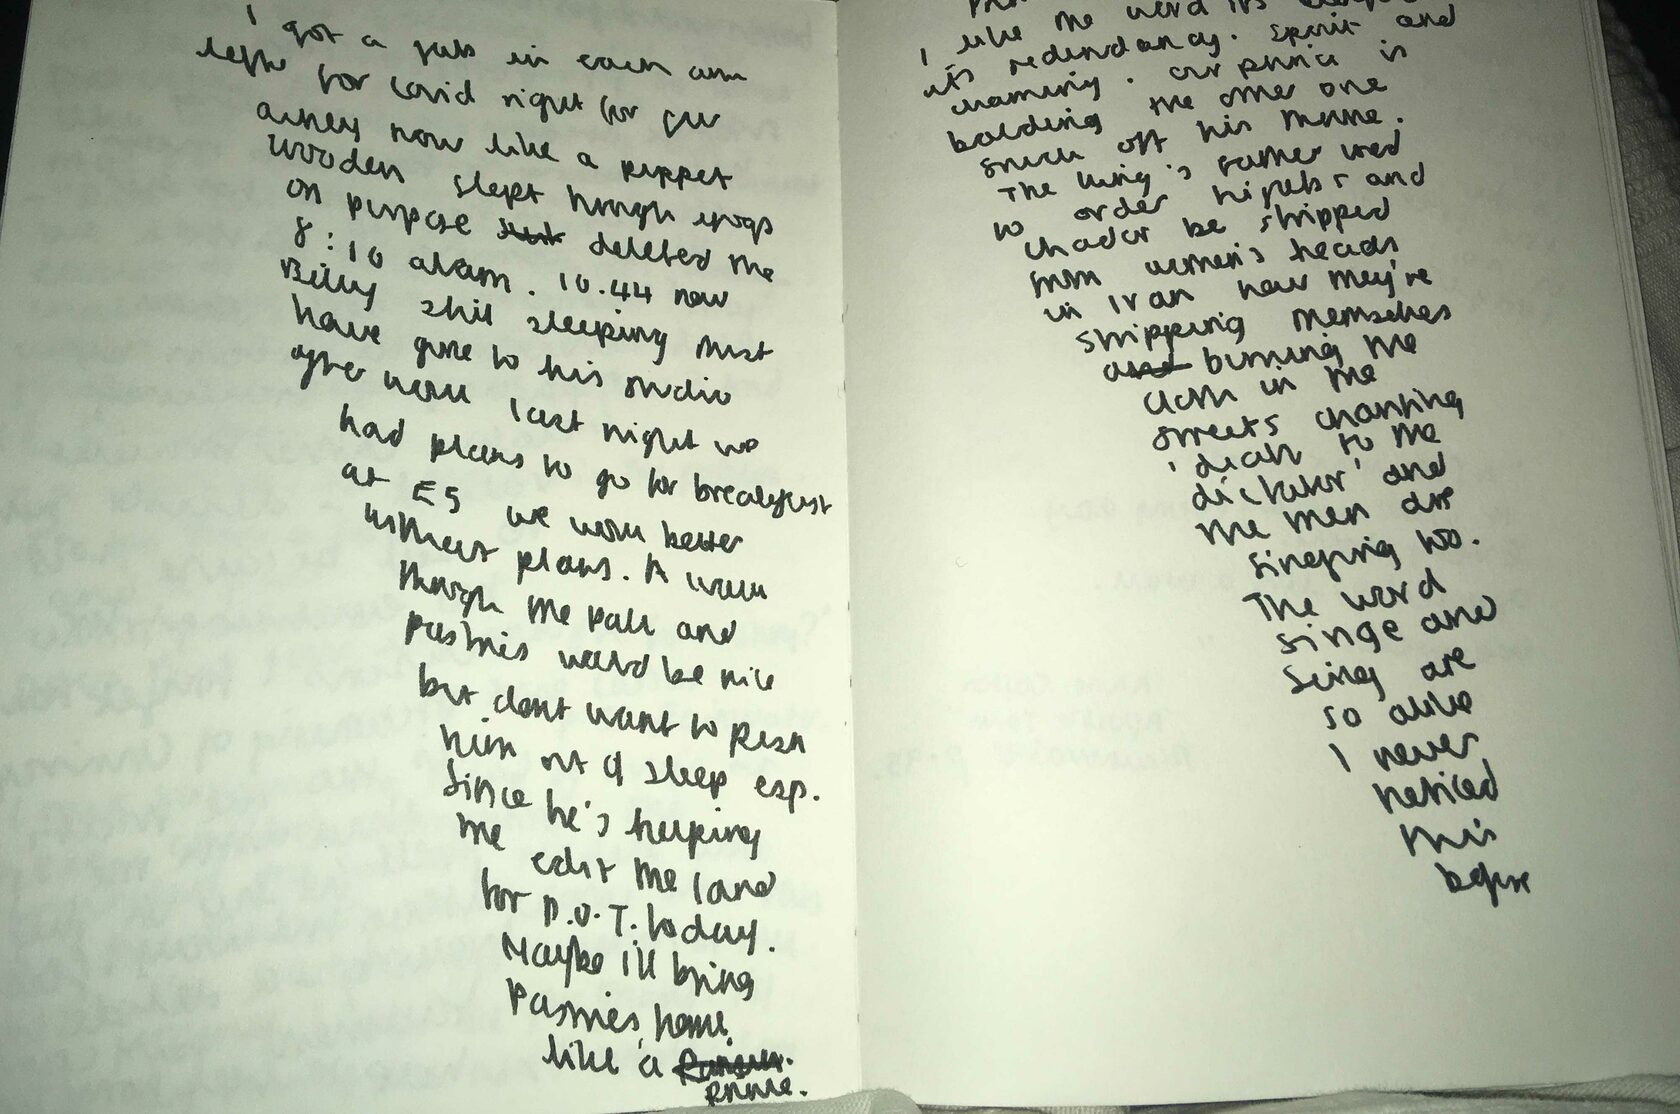 I got a jab in each arm
left for covid right for flu
achey now like a puppet
wooden slept through
on purpose deleted the
8:10 alarm. 10.44 now
Billy still sleeping must
have gone to his studio
after work last night we
had plans to go for breakfast
at E5 we work better
without plans. A walk
through the park and
pastries would be nice
but dont want to push
him out of sleep esp.
since he's helping
me edit the land
for P.O.T. today.
Maybe I'll bring
Pastries home.
like a
I like the word its
its redundancy. Spirit and
charming. Our prince is
balding the other one
snuck off his throne.
The king's father used
to order hijabs and
chador be stripped
from women's heads
in Iran now they're
stripping themselves
and burning the
cloth in the
streets chanting
'death to the
dictator' and
the men are
singeing too.
The word
singe and
sing are
so alike
I never
noticed
this
before